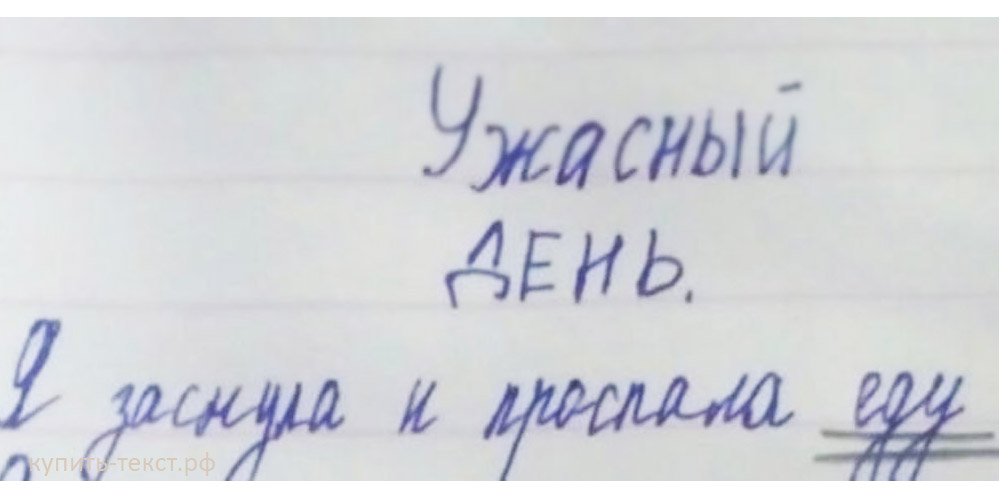 Ужасный
ДЕНЬ.
Я заснула и проспала еду
купить-текст.рф